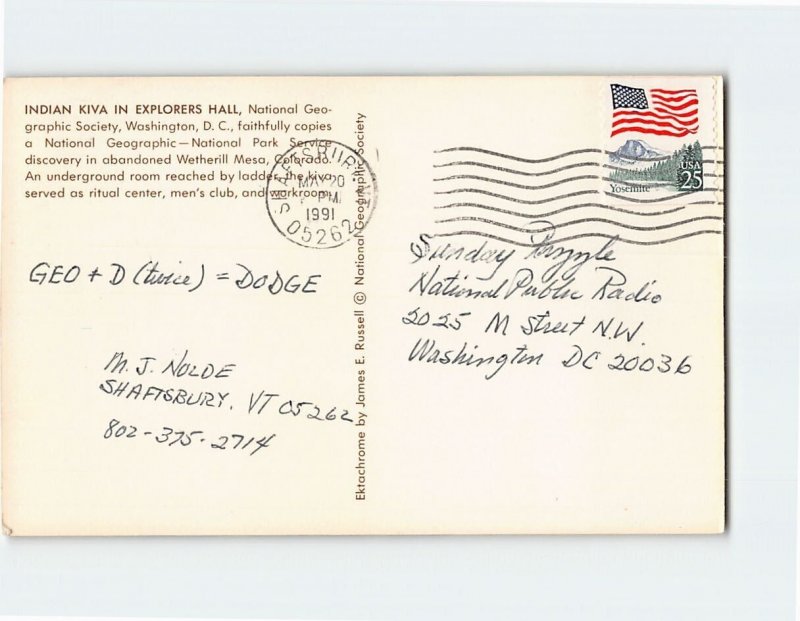 INDIAN KIVA IN EXPLORERS HALL, National Geo-
graphic Society, Washington, D. C., faithfully copies
a National Geographic—National Park Service
discovery in abandoned Wetherill Mesa, Colorado.
An underground room reached by ladder, the kiva
served as ritual center, men's club, and workroom.
SHAFTSBURY, VT
MAY 20
PM
1991
05262
USA
25
Yosemite
GEO + D (twice) = DODGE
M. J. NOLDE
SHAFTSBURY, VT 05262
802-375-2714
Ektachrome by James E. Russell © National Geographic Society
Sunday Puzzle
National Public Radio
2025 M Street N.W.
Washington DC 20036